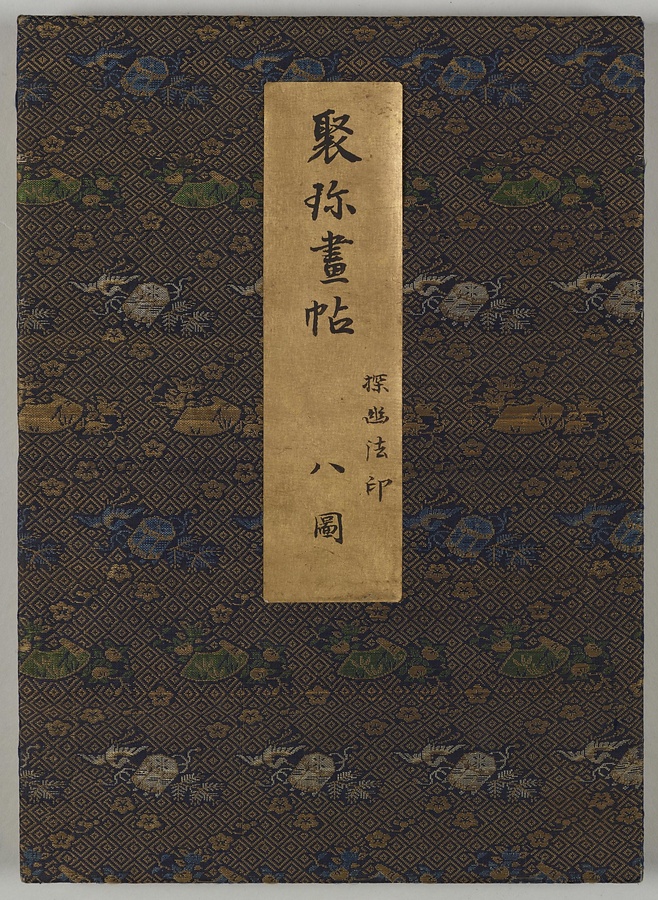 聚珎畫帖
探幽法印
八圖